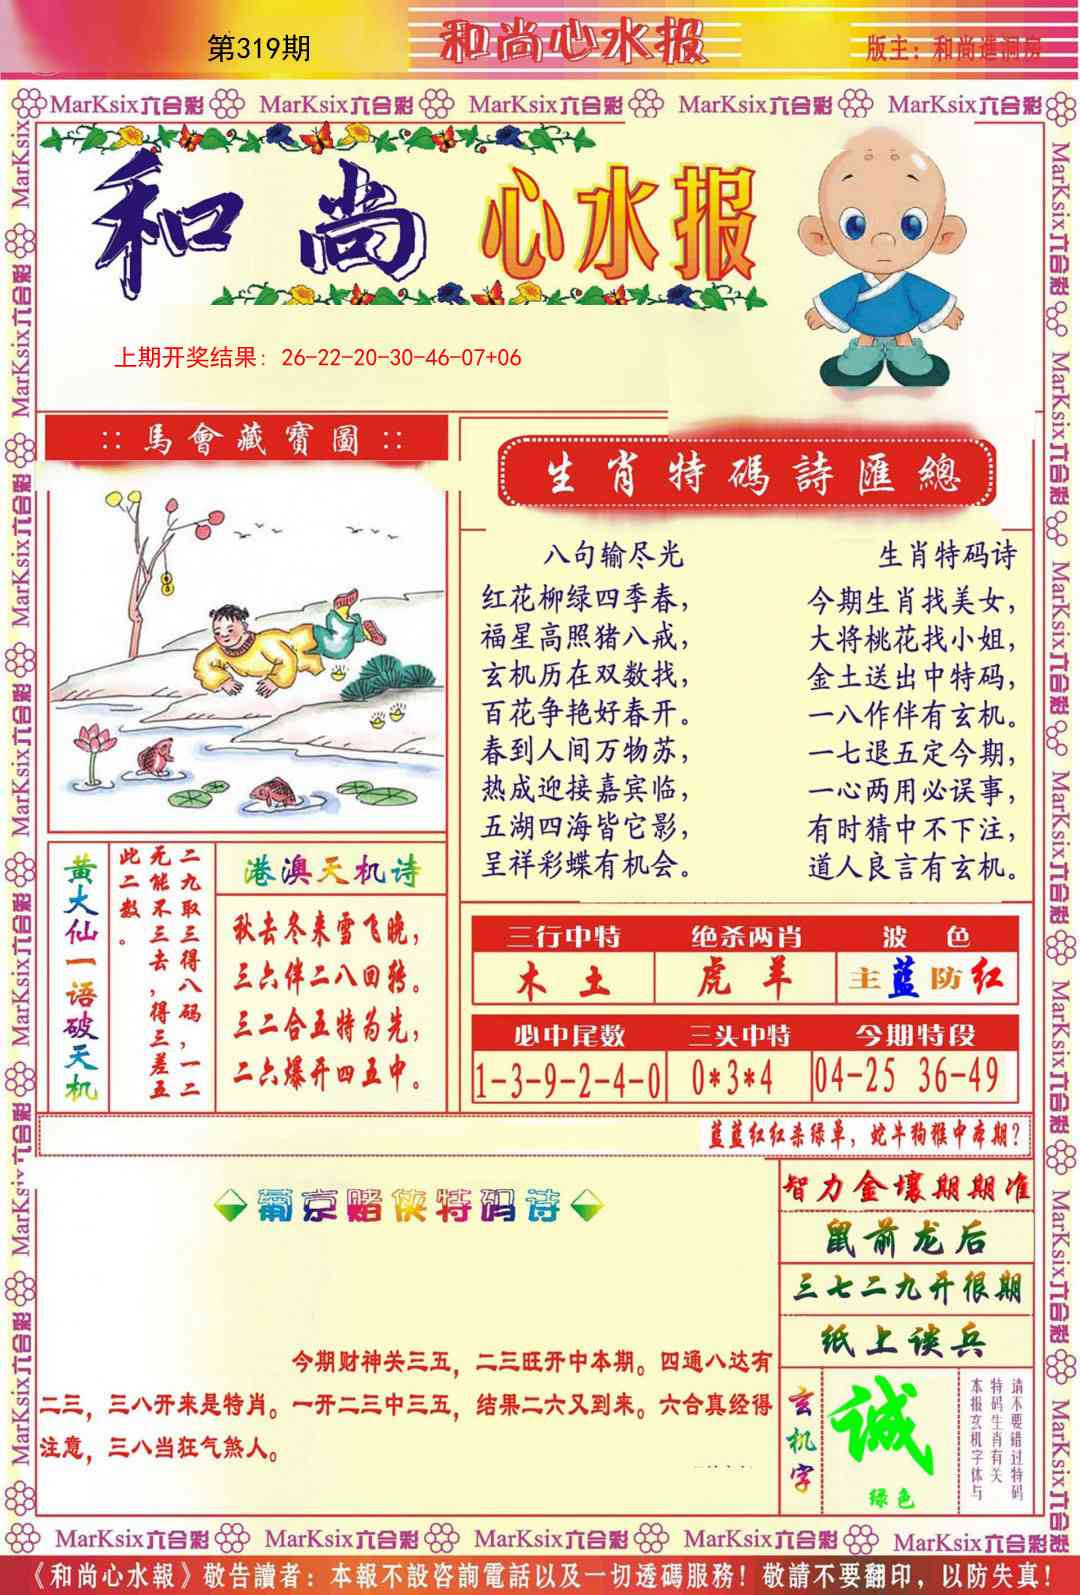 第319期
和尚心水报
版主：和尚進洞房
MarKsix六合彩 MarKsix六合彩 MarKsix六合彩 MarKsix六合彩 MarKsix六合彩
和尚心水报
上期开奖结果：26-22-20-30-46-07+06
::馬會藏寶圖::
生肖特碼詩匯總
八句输尽光
红花柳绿四季春，
福星高照猪八戒，
玄机历在双数找，
百花争艳好春开。
春到人间万物苏，
热成迎接嘉宾临，
五湖四海皆它影，
呈祥彩蝶有机会。
生肖特码诗
今期生肖找美女，
大将桃花找小姐，
金土送出中特码，
一八作伴有玄机。
一七退五定今期，
一心两用必误事，
有时猜中不下注，
道人良言有玄机。
黄大仙一语破天机
二九取三得八码，一二
无能不三去，得三差五
此二数。
港澳天机诗
秋去冬来雪飞晚，
三六伴二八回转。
三二合五特为先，
二六爆开四五中。
三行中特 绝杀两肖 波色
木土 虎羊 主蓝防红
必中尾数 三头中特 今期特段
1-3-9-2-4-0 0*3*4 04-25 36-49
蓝蓝红红杀绿单，蛇牛狗猴中本期？
葡京赌侠特码诗
今期财神关三五，二三旺开中本期。四通八达有
二三，三八开来是特肖。一开二三中三五，结果二六又到来。六合真经得
注意，三八当狂气煞人。
智力金壤期期准
鼠前龙后
三七二九开很期
纸上谈兵
玄机字
诚
绿色
请不要错过特码
特码生肖有关
本报玄机字体与
MarKsix六合彩 MarKsix六合彩 MarKsix六合彩 MarKsix六合彩 MarKsix六合彩
《和尚心水報》敬告讀者：本報不設咨詢電話以及一切透碼服務！敬請不要翻印，以防失真！